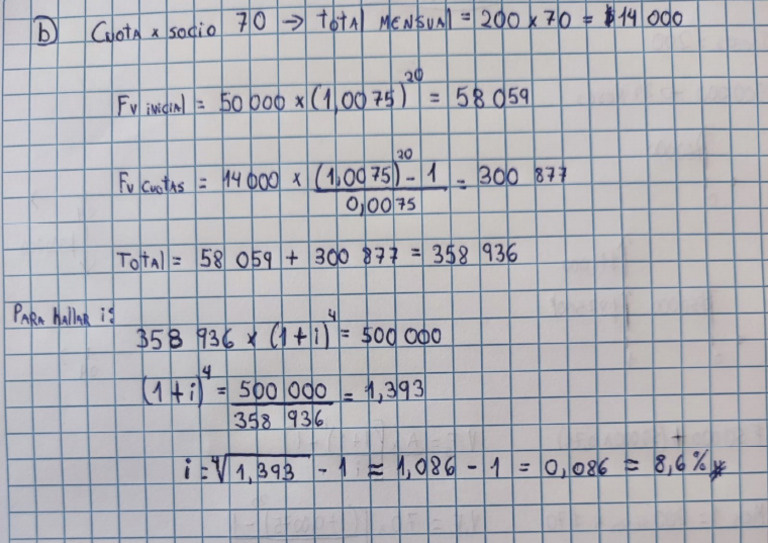 b) Cuota x socio 70 → Total mensual = 200 x 70 = $14 000
Fv inicial = 50 000 x (1,0075)^20 = 58 059
Fv cuotas = 14 000 x ((1,0075)^20 - 1) / 0,0075 = 300 877
Total = 58 059 + 300 877 = 358 936
Para hallar i:
358 936 x (1+i)^4 = 500 000
(1+i)^4 = 500 000 / 358 936 = 1,393
i = ∜1,393 - 1 ≈ 1,086 - 1 = 0,086 ≈ 8,6%